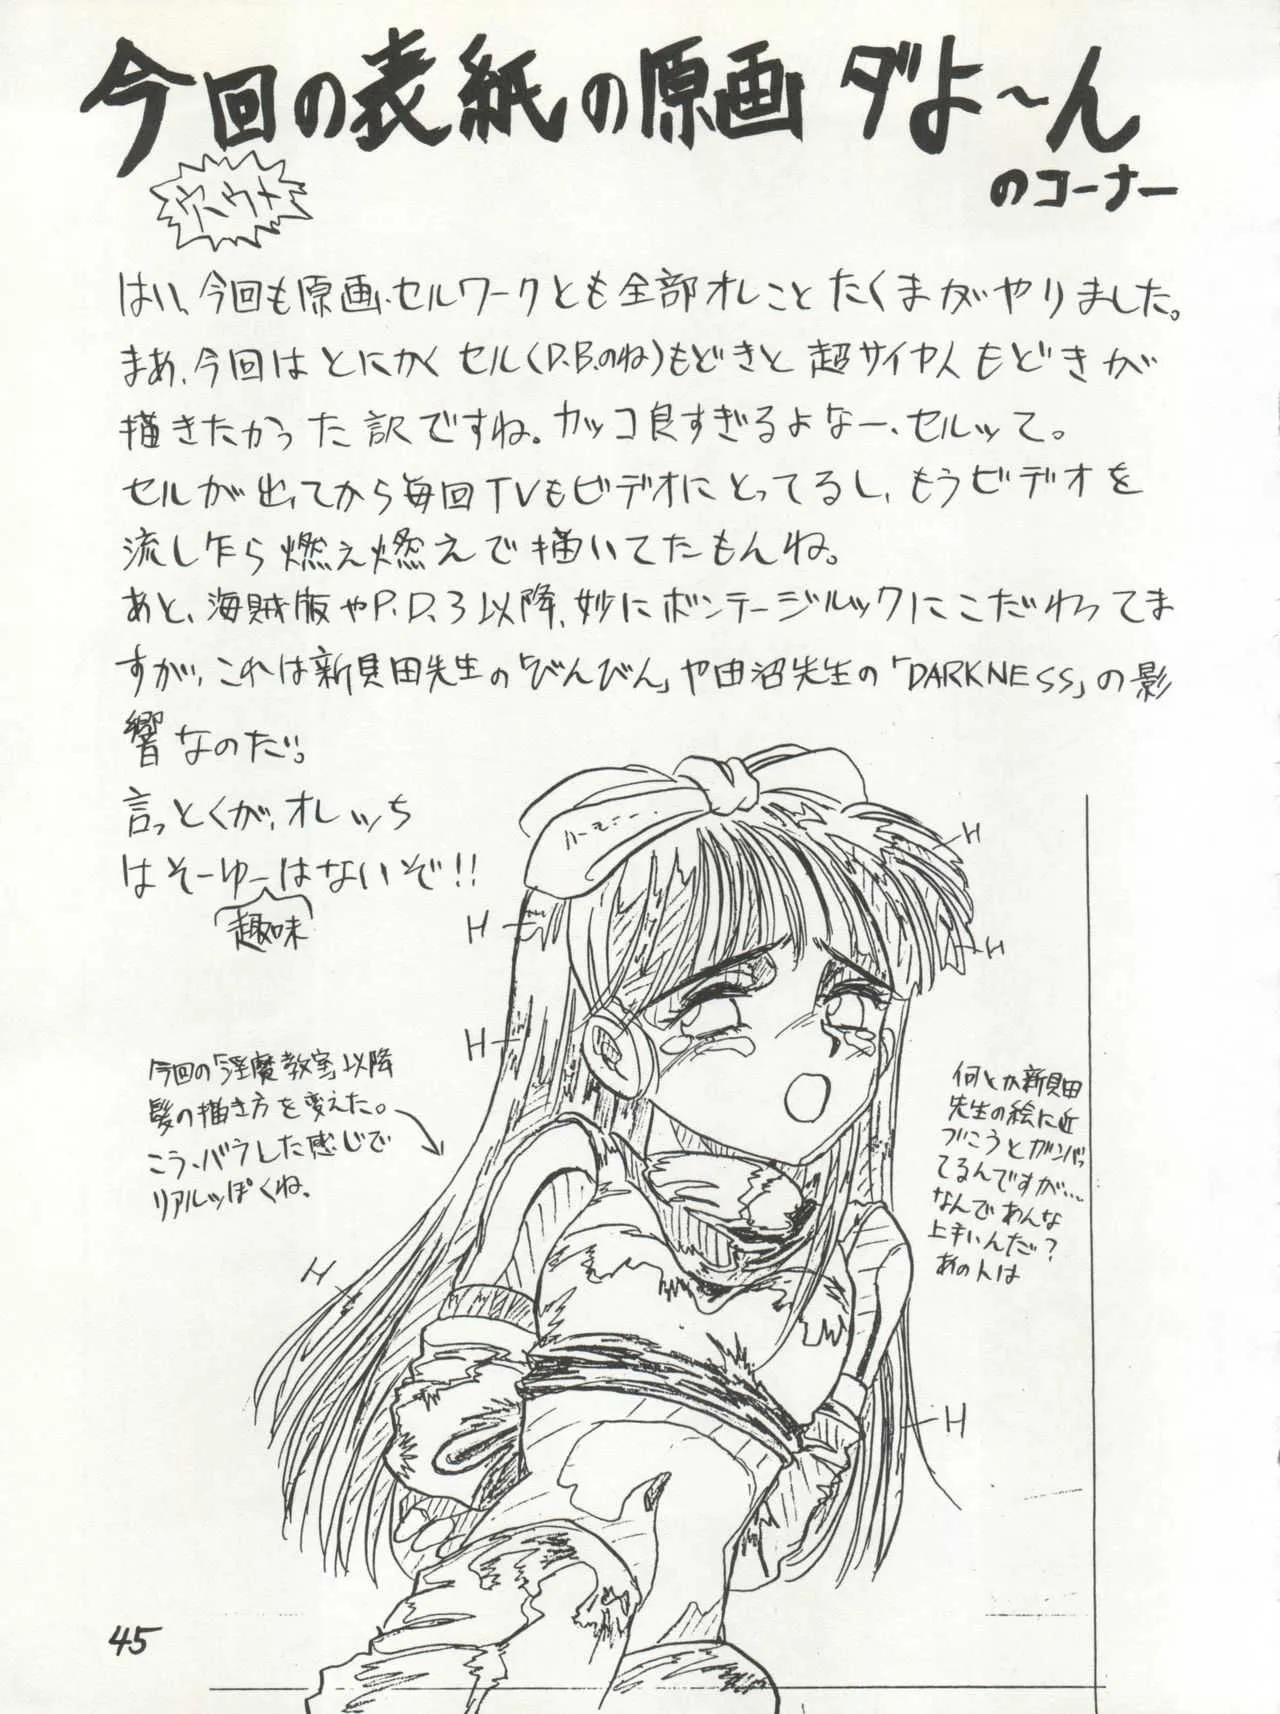 今回の表紙の原画ダよ〜ん
のコーナー
穴ウメ
はい、今回も原画、セルワークとも全部オレことたくまがやりました。
まあ、今回はとにかくセル(D.B.のね)もどきと超サイヤ人もどきが
描きたかった訳ですね。カッコ良すぎるよなー、セルッて。
セルが出てから毎回TVもビデオにとってるし、もうビデオを
流し乍ら燃え燃えで描いてたもんね。
あと、海賊版やP.D.3以降、妙にボンテージルックにこだわってま
すが、これは新貝田先生の「びんびん」や由沼先生の「DARKNESS」の影
響なのだ。
言っとくが、オレッち
はそーゆーはないぞ!!
趣味
ハーモニー
H
H
H
H
今回の「淫魔教室」以降
髪の描き方を変えた。
こう、バラした感じで
リアルッぽくね。
何とか新貝田
先生の絵に近
づこうとガンバっ
てるんですが…
なんであんな
上手いんだ?
あの人は
H
H
45